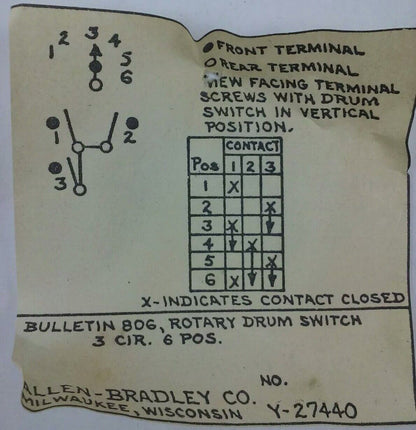 1 2 3 4 5 6
● FRONT TERMINAL
○ REAR TERMINAL
VIEW FACING TERMINAL
SCREWS WITH DRUM
SWITCH IN VERTICAL
POSITION.
1 2
3
CONTACT
POS 1 2 3
1 X
2 X
3 X
4 X
5 X
6 X
X-INDICATES CONTACT CLOSED
BULLETIN 806, ROTARY DRUM SWITCH
3 CIR. 6 POS.
NO.
ALLEN-BRADLEY CO.
MILWAUKEE, WISCONSIN Y-27440